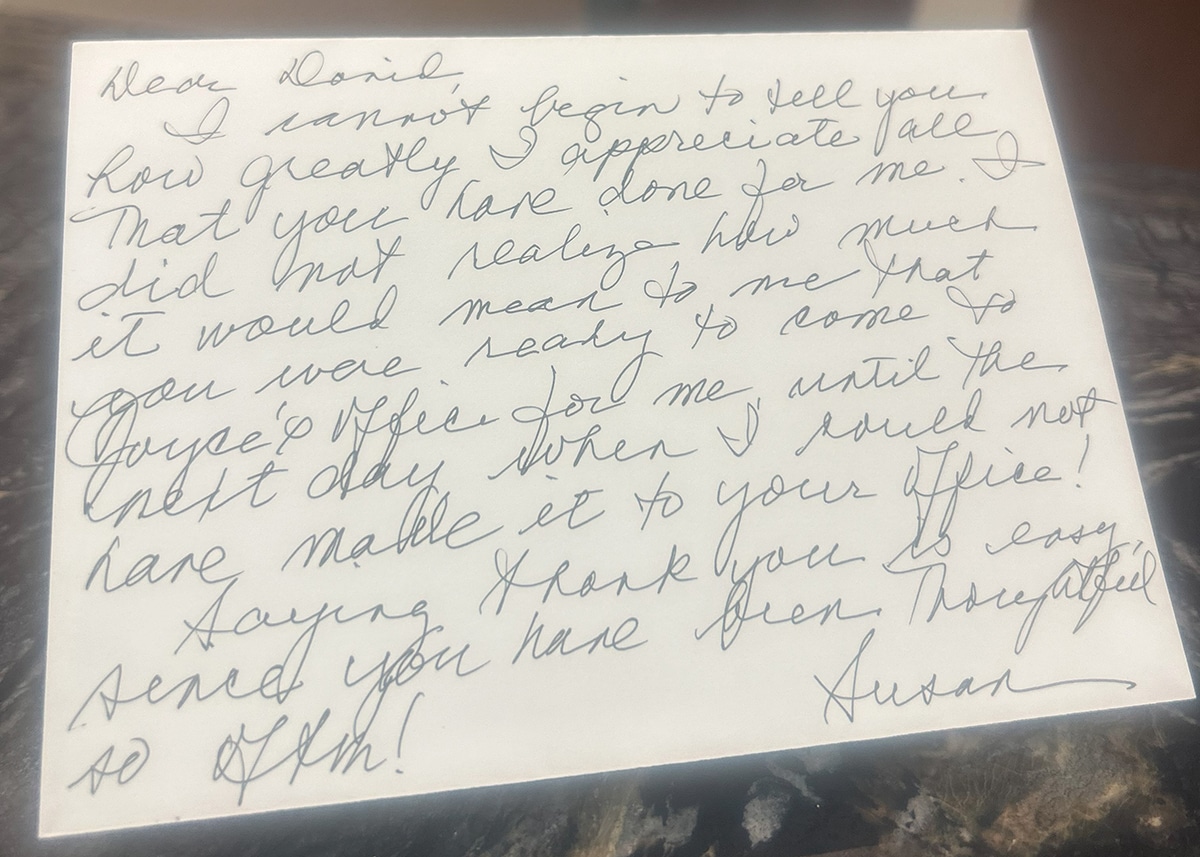 Dear David,
I cannot begin to tell you
how greatly I appreciate all
that you have done for me. I
did not realize how much
it would mean to me that
you were ready to come to
Joyce's office for me, until the
next day when I could not
have made it to your office!
Saying thank you is easy,
since you have been thoughtful
so often!
Susan